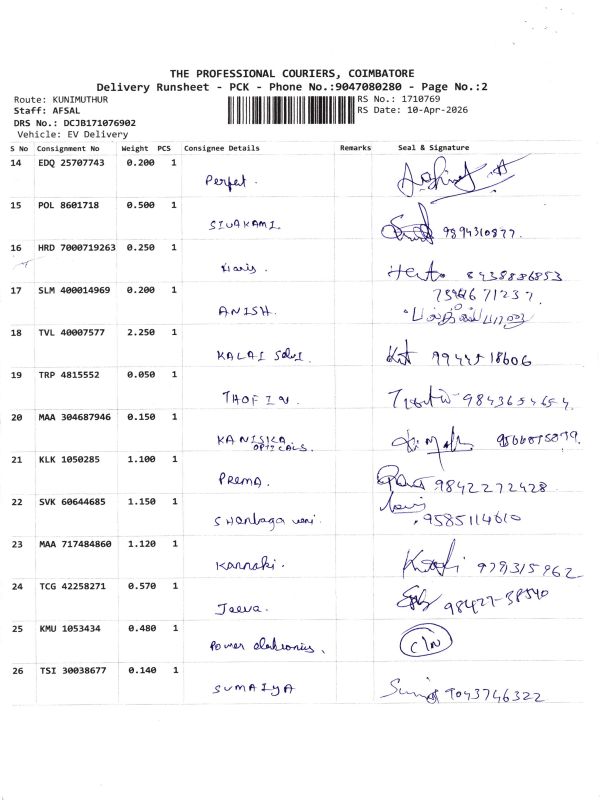 THE PROFESSIONAL COURIERS, COIMBATORE
Delivery Runsheet - PCK - Phone No.:9047080280 - Page No.:2
Route: KUNIMUTHUR
RS No.: 1710769
Staff: AFSAL
RS Date: 10-Apr-2026
DRS No.: DCJB171076902
Vehicle: EV Delivery
S No Consignment No Weight PCS Consignee Details Remarks Seal & Signature
14 EDQ 25707743 0.200 1
Perfect.
15 POL 8601718 0.500 1
SIVAKAMI 9894310877.
16 HRD 7000719263 0.250 1
Haris. 8438836853
17 SLM 400014969 0.200 1
ANISH.
18 TVL 40007577 2.250 1
KALAI Selvi. 9944518606
19 TRP 4815552 0.050 1
THOFIN. 9843654654.
20 MAA 304687946 0.150 1
KANISKA
OPTICALS.
21 KLK 1050285 1.100 1
PREMA. 9842272428
22 SVK 60644685 1.150 1
Shanbaga veni. 9585114610
23 MAA 717484860 1.120 1
Kannaki.
24 TCG 42258271 0.570 1
Jeeva. 98427-38540
25 KMU 1053434 0.480 1
Power elektronics.
26 TSI 30038677 0.140 1
SUMAIYA 9043746322